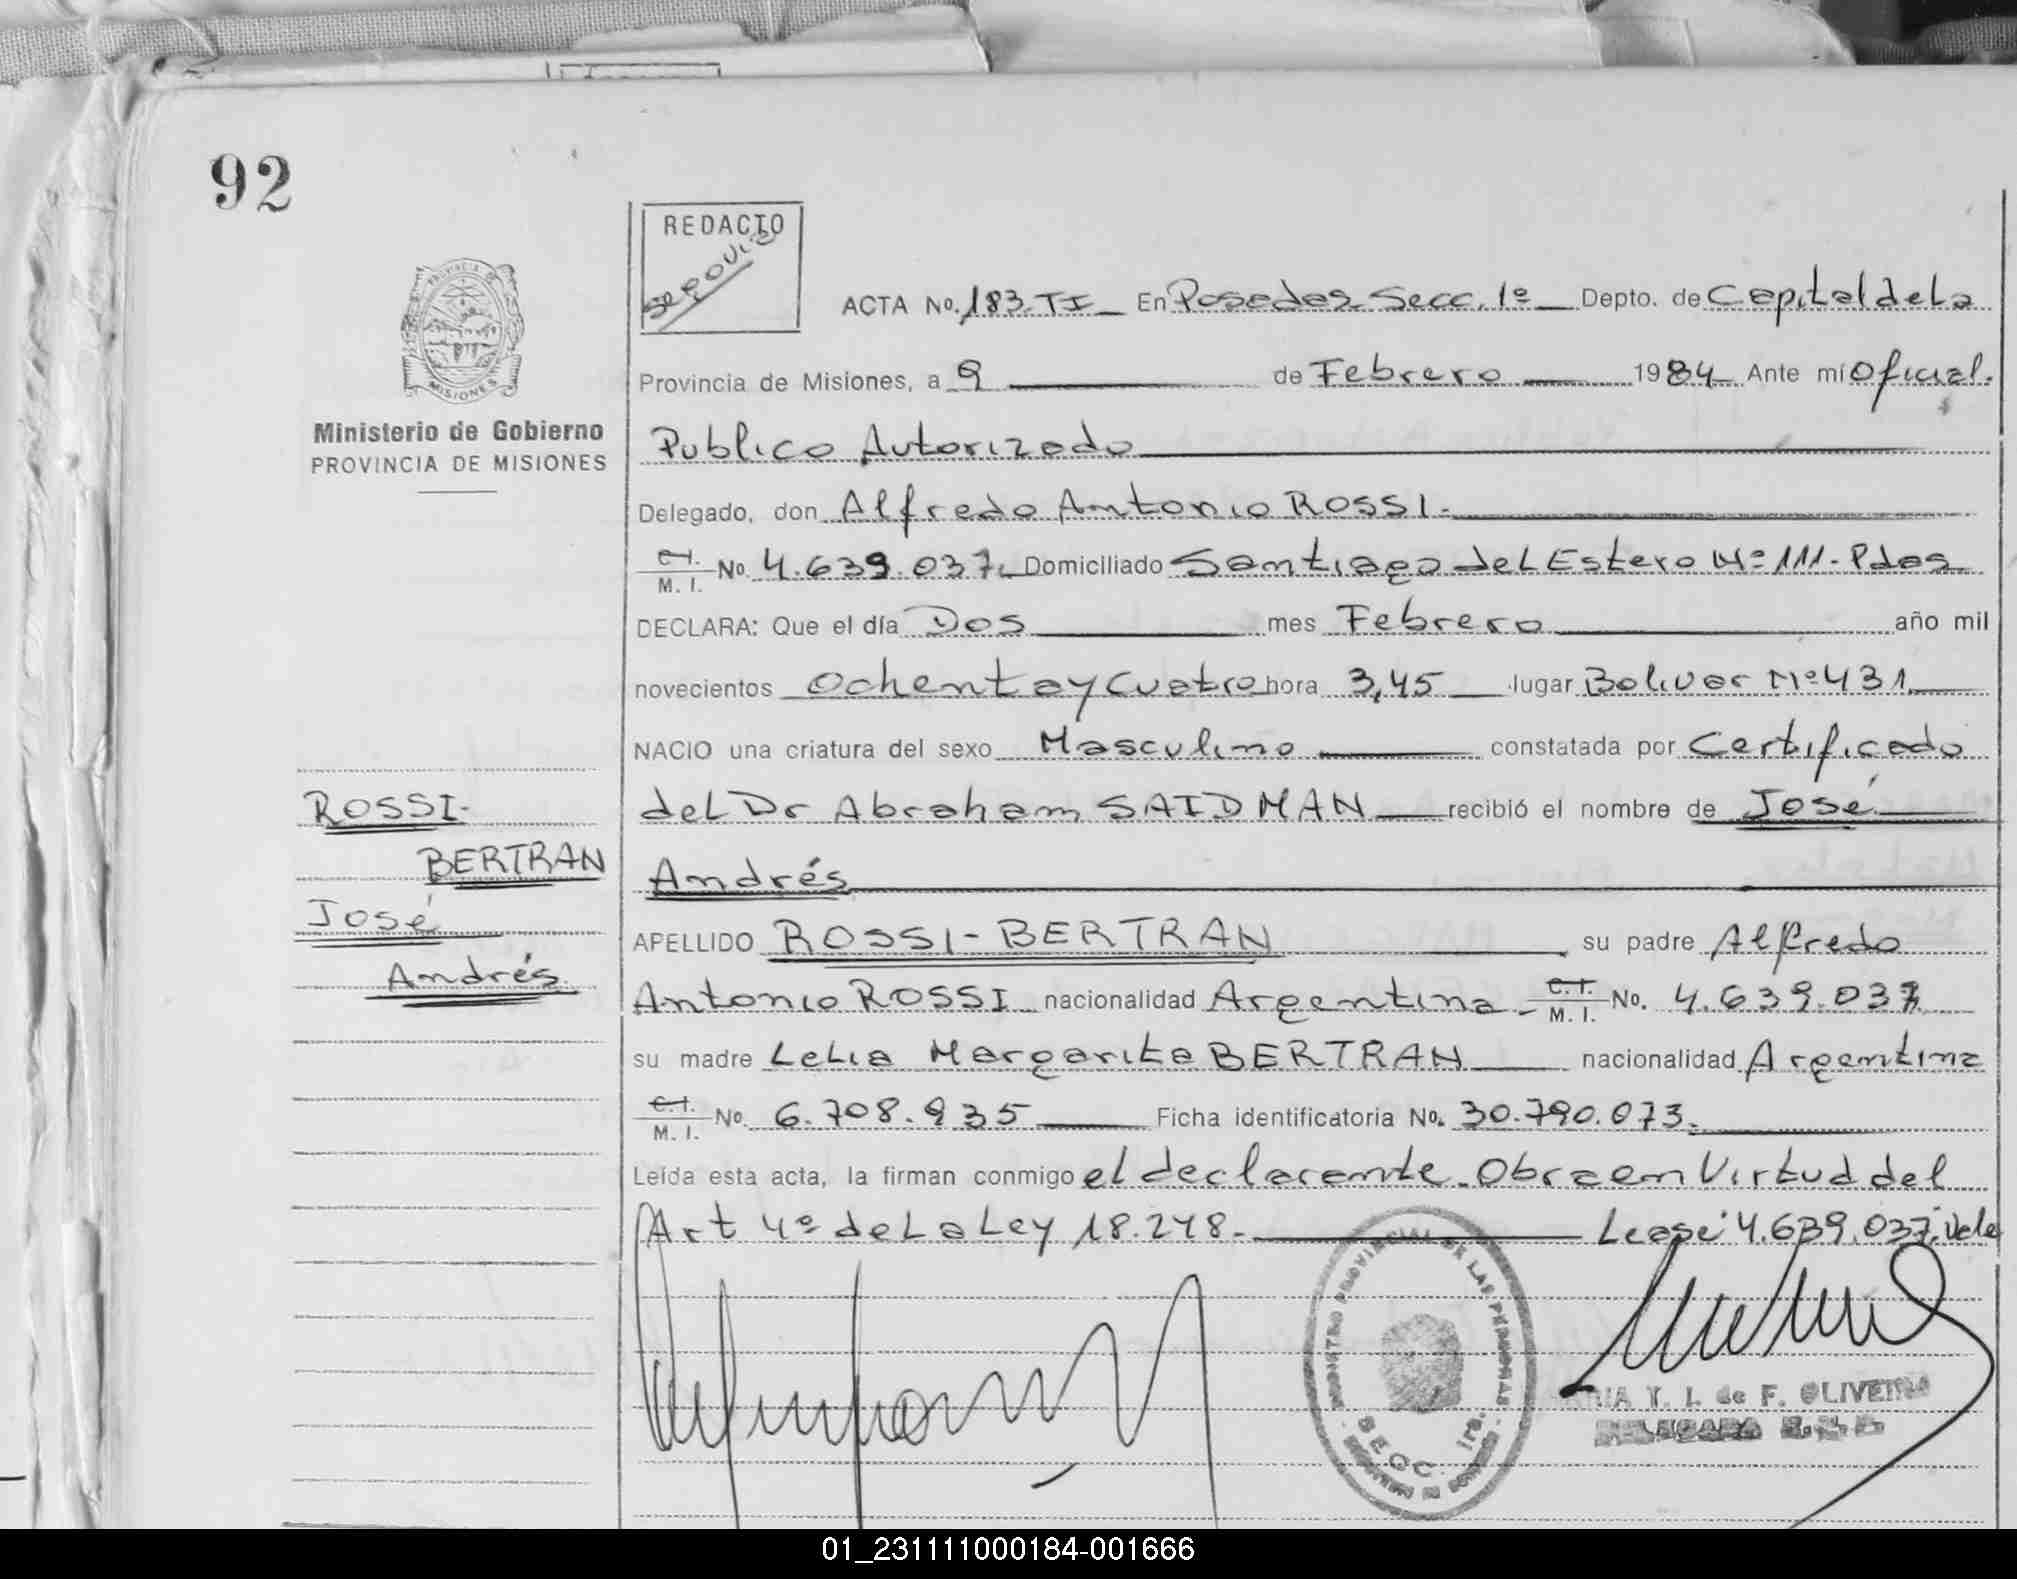 92
REDACTO
ACTA No. 183. TI En Posadas Secc. 1º Depto. de Capital de La
Provincia de Misiones, a 9 de Febrero 1984 Ante mí Oficial.
PROVINCIA DE
MISIONES
Ministerio de Gobierno
PROVINCIA DE MISIONES
Publico Autorizado
Delegado, don Alfredo Antonio ROSSI.
C.I. M. I. No. 4.639.037. Domiciliado Santiago del Estero Nº 111. Pdas
DECLARA: Que el día Dos mes Febrero año mil
novecientos Ochenta y Cuatro hora 3,45 lugar Bolivar Nº 431
NACIO una criatura del sexo Masculino constatada por Certificado
del Dr Abraham SAIDMAN recibió el nombre de José
Andrés
ROSSI-
BERTRAN
José
Andrés
APELLIDO ROSSI-BERTRAN su padre Alfredo
Antonio ROSSI nacionalidad Argentina C.I. M. I. No. 4.639.037
su madre Lelia Margarita BERTRAN nacionalidad Argentina
C.I. M. I. No. 6.708.935 Ficha identificatoria No. 30.790.073.
Leída esta acta, la firman conmigo el declarante. Obra en Virtud del
Art 4º de La Ley 18.248. Lease: 4.639.037. Vale
REGISTRO PROVINCIAL DE LAS PERSONAS
SECC. 1ra.
T. I. de F. OLIVEIRA
DELEGADA
01_231111000184-001666